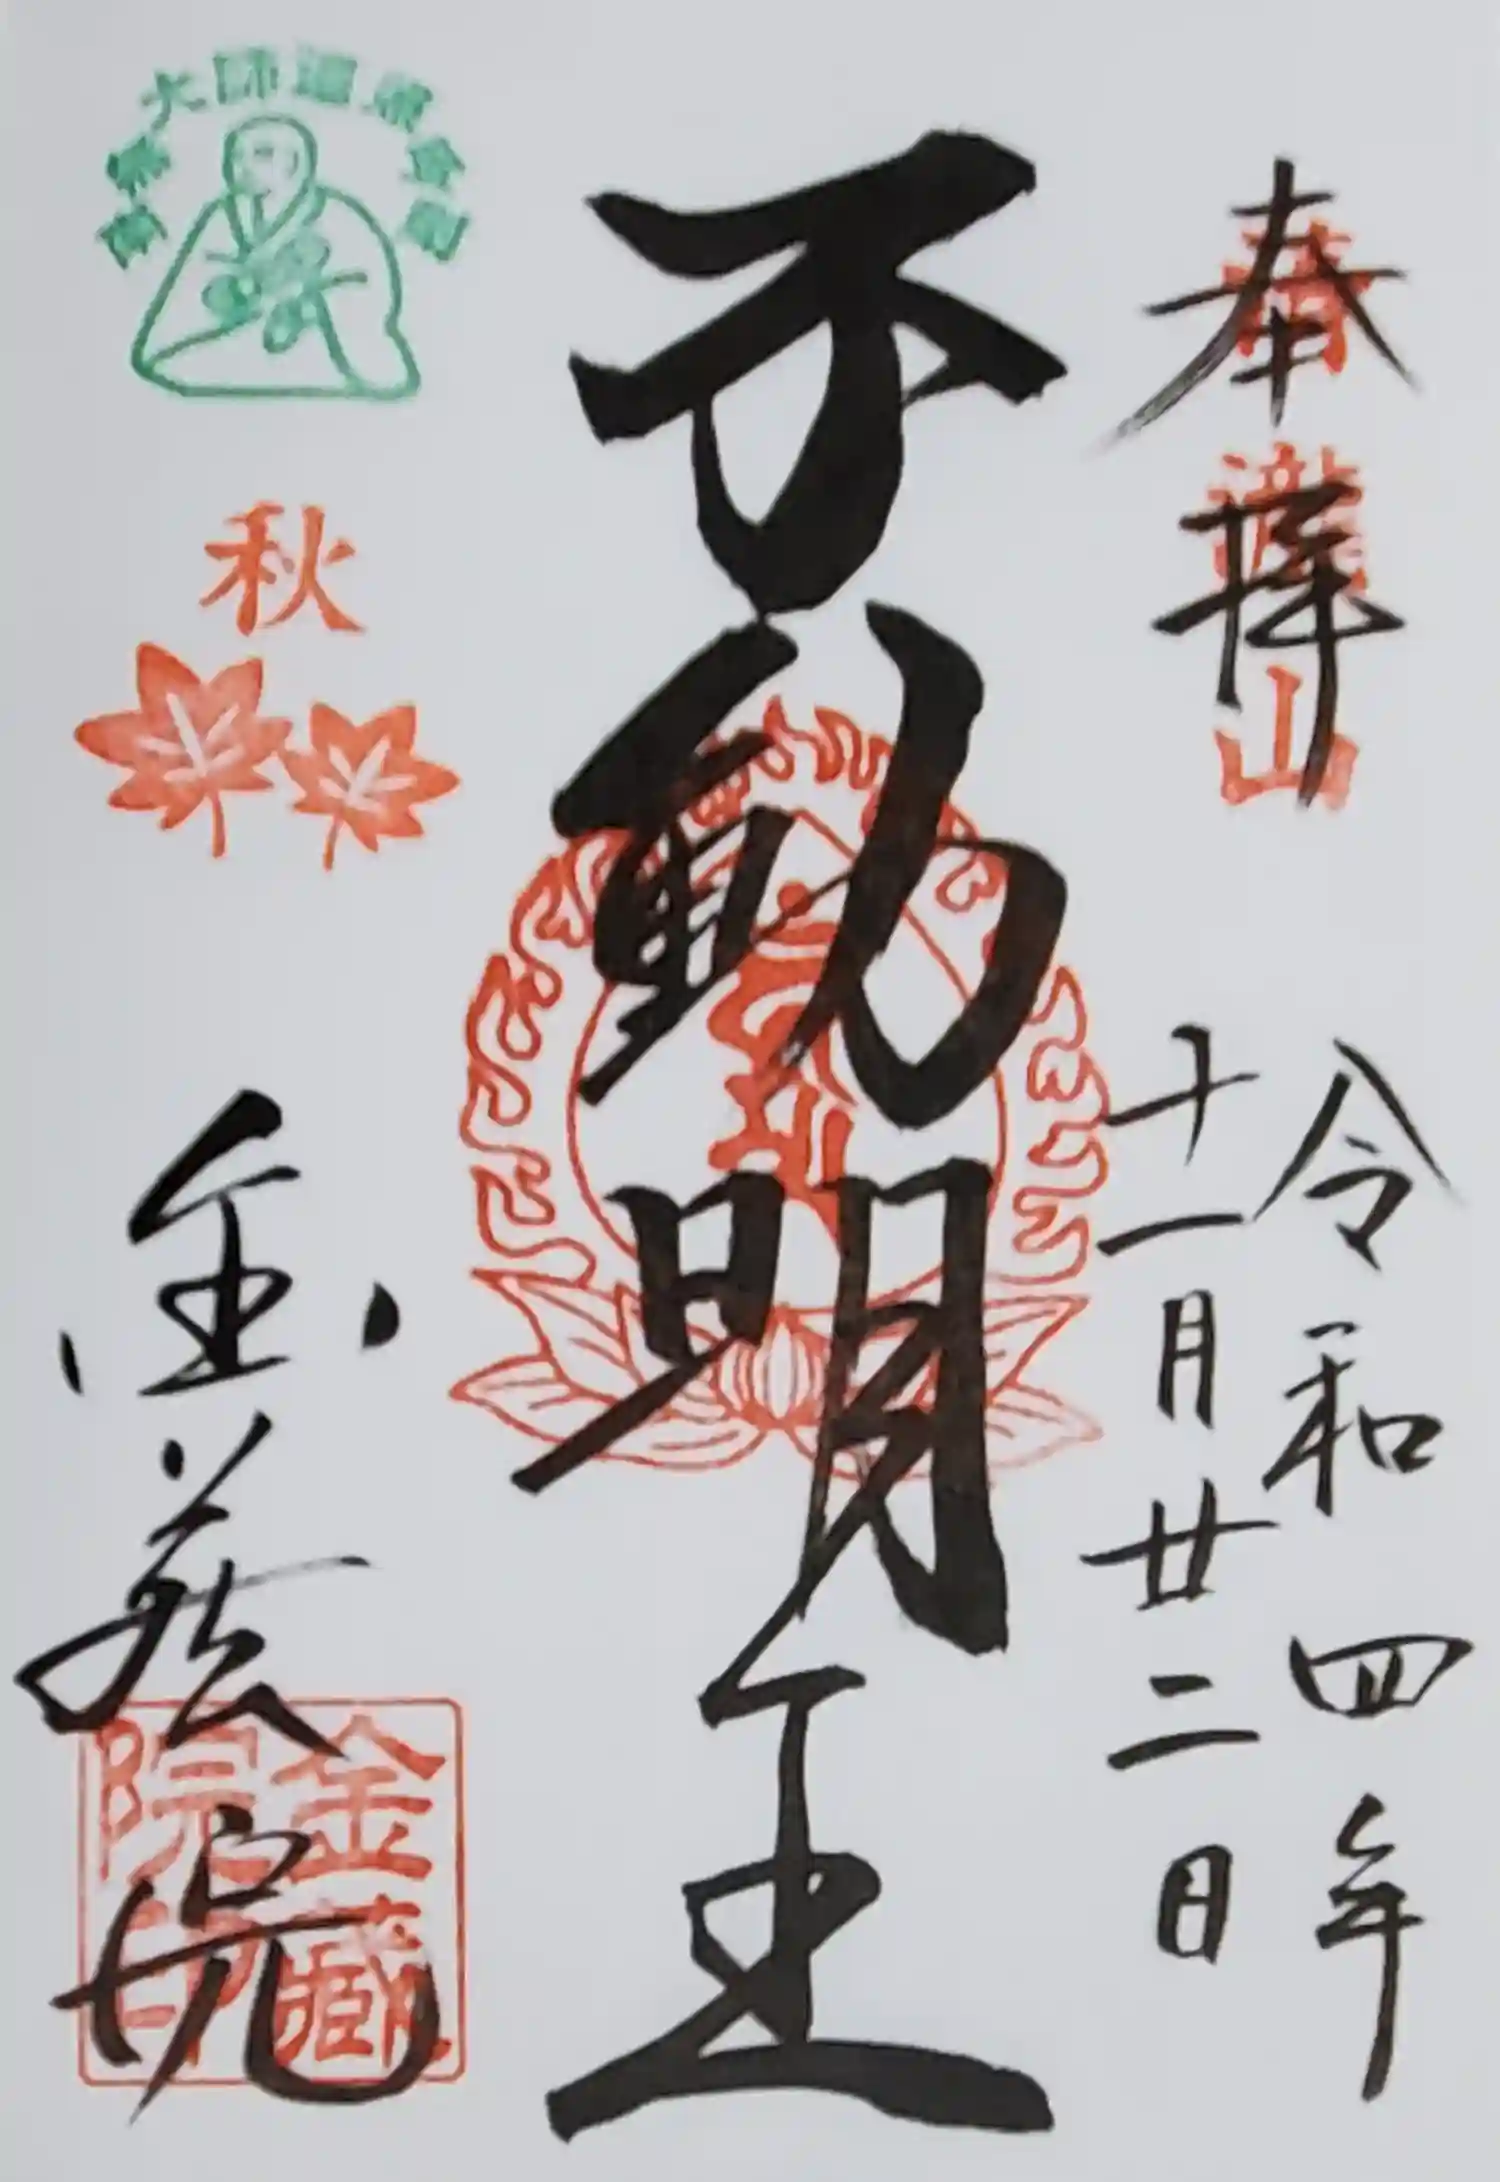 奉拝
令和四年
十一月廿二日
不動明王
秋
金蔵院
金藏
院印